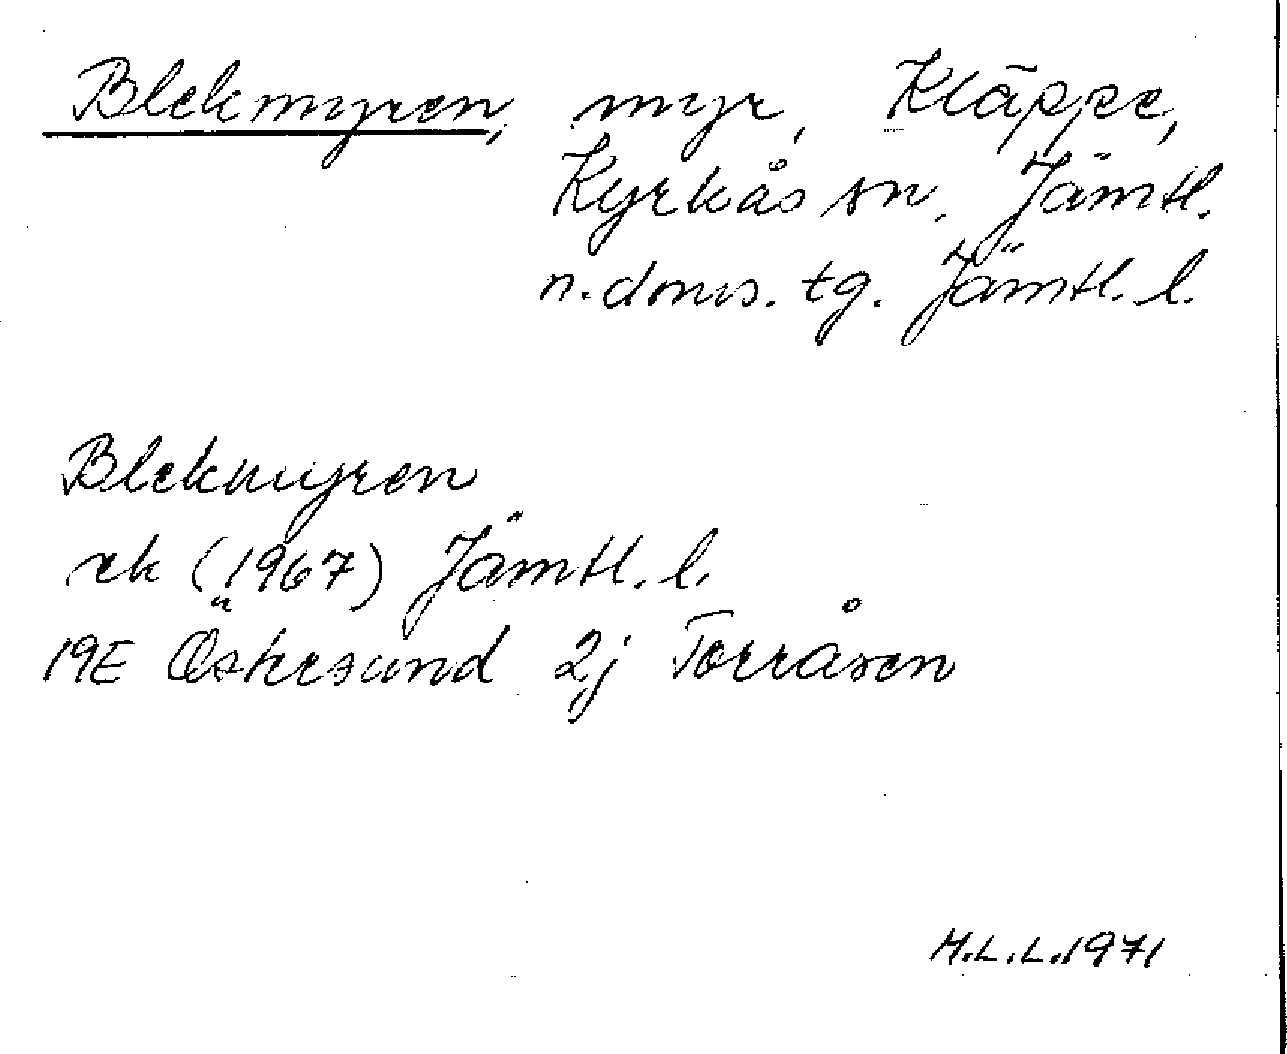 Blekmyren, myr, Kläppe,
Kyrkås sn, Jämtl.
n. doms. tg. Jämtl. l.
Blekmyren
ek (1967) Jämtl. l.
19E Östersund 2j Torråsen
M.L.L. 1971